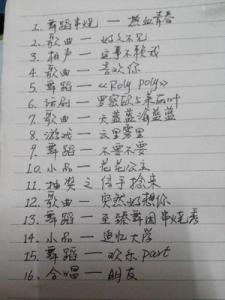 1. 舞蹈串烧 — 热血青春
2. 歌曲 — 好久不见
3. 相声 — 这事不赖我
4. 歌曲 — 喜欢你
5. 舞蹈 — 《Roly poly》
6. 话剧 — 罗密欧与朱丽叶
7. 歌曲 — 天蓝蓝海蓝蓝
8. 游戏 — 云里雾里
9. 舞蹈 — 不要不要
10. 小品 — 花花公主
11. 抽奖之信手捻来
12. 歌曲 — 突然好想你
13. 舞蹈 — 至臻舞团串烧秀
14. 小品 — 追忆大学
15. 舞蹈 — 欢乐part
16. 合唱 — 朋友